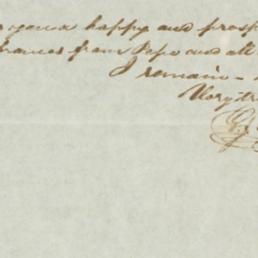 you a happy and prosp
from Papa and all
I remain -
Very tr